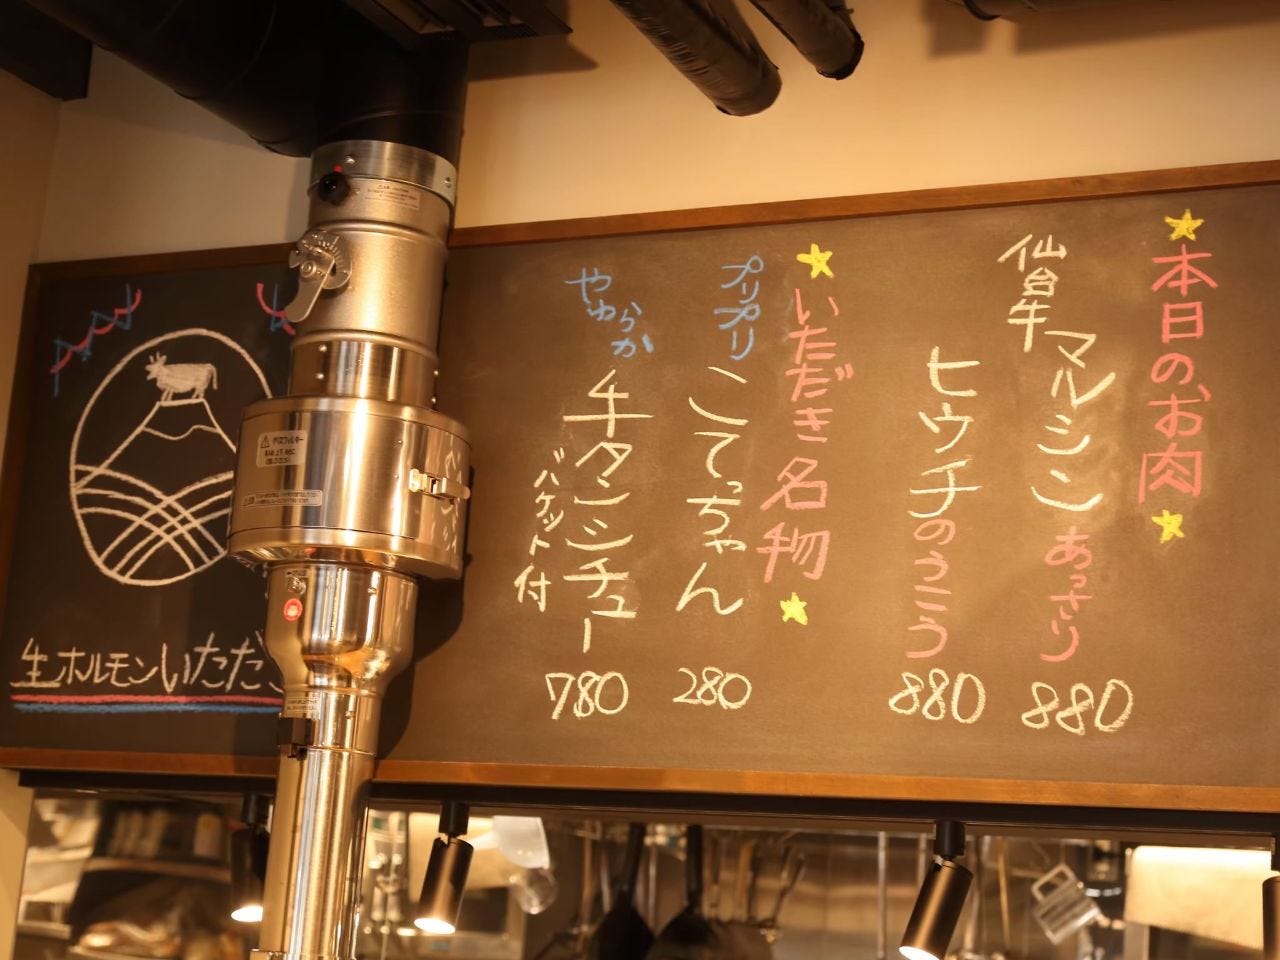 本日のお肉
仙台牛
マルシン あっさり 880
ヒウチ のうこう 880
いただき名物
プリプリ
こてっちゃん 280
やわらか
牛タンシチュー 780
バケット付
生ホルモンいただ
グリスフィルター